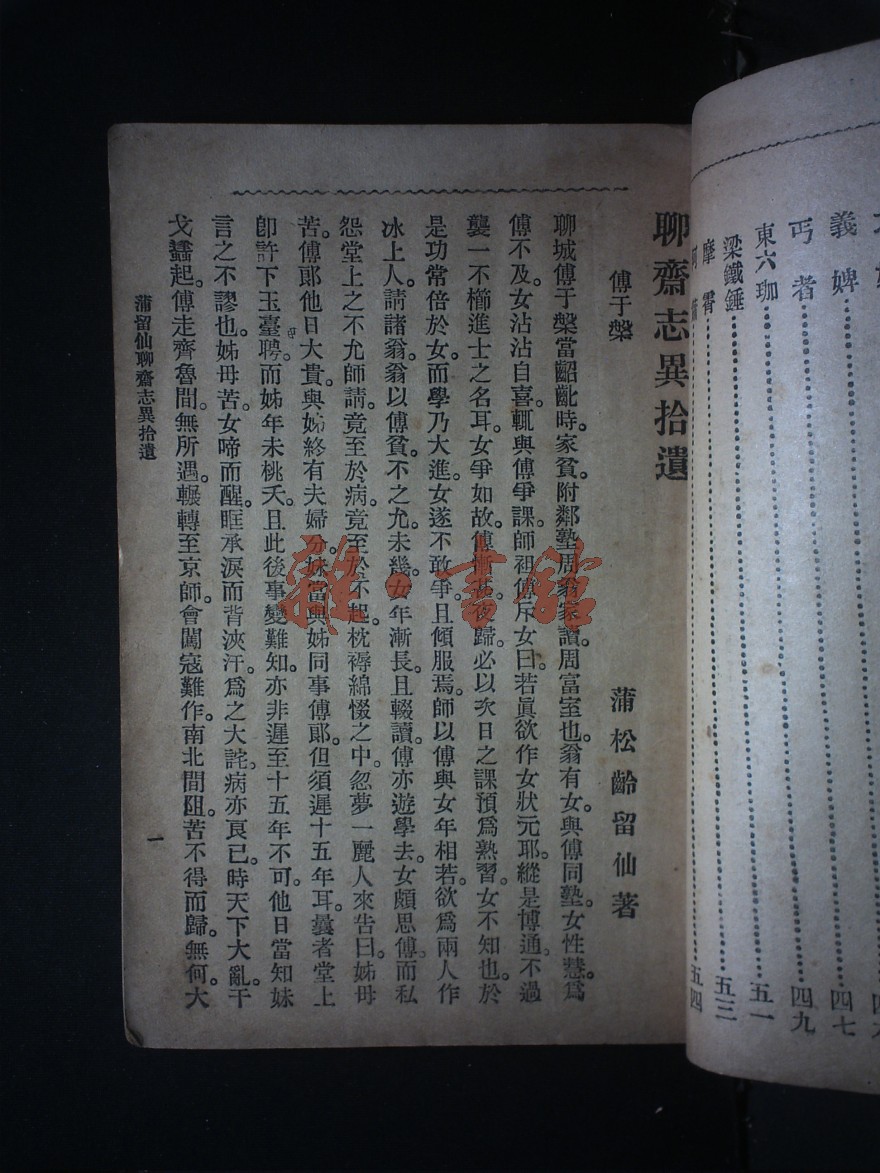 義婢 四七
丐者 四九
東六珈 五一
梁鐵錘 五三
五四
聊齋志異拾遺
蒲松齡留仙著
傅于槃
聊城傅于槃當齠齔時。家貧。附鄰塾周翁家讀。周富室也。翁有女。與傅同塾。女性慧。爲
傅不及。女沾沾自喜。輒與傅爭課。師袒傅斥女曰。若眞欲作女狀元耶。縱是博通。不過
襲一不櫛進士之名耳。女爭如故。傅慚甚。夜歸。必以次日之課預爲熟習。女不知也。於
是功常倍於女。而學乃大進。女遂不敢爭。且傾服焉。師以傅與女年相若。欲爲兩人作
冰上人。請諸翁。翁以傅貧。不之允。未幾。女年漸長。且輟讀。傅亦遊學去。女頗思傅。而私
怨堂上之不允師請。竟至於病。竟至於不起。枕褥綿惙之中。忽夢一麗人來告曰。姊毋
苦。傅郞他日大貴。與姊終有夫婦分。妹當與姊同事傅郞。但須遲十五年耳。曩者堂上
卽許下玉臺聘。而姊年未桃夭。且此後事變難知。亦非遲至十五年不可。他日當知妹
言之不謬也。姊毋苦。女啼而醒。眶承淚而背浹汗。爲之大詫。病亦良已。時天下大亂。干
戈蠭起。傅走齊魯間。無所遇。輾轉至京師。會闖寇難作。南北間阻。苦不得而歸。無何。大
蒲留仙聊齋志異拾遺
一
雜·書館